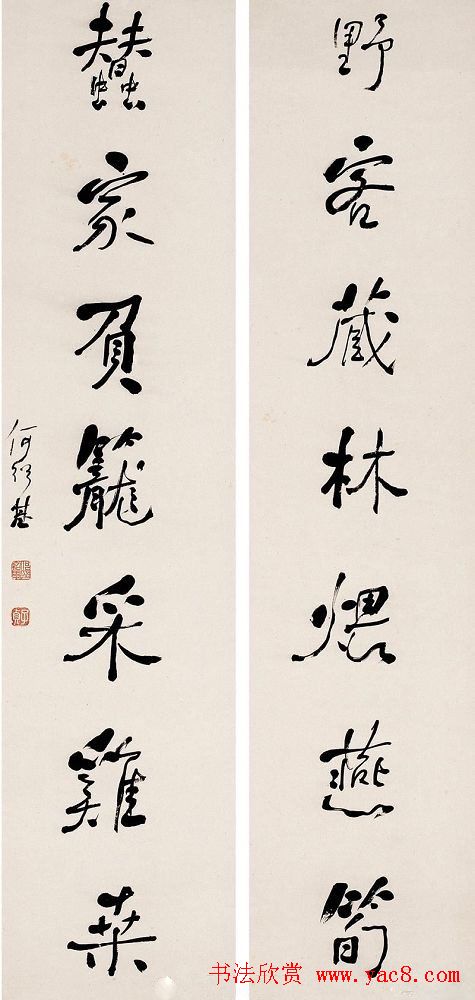 野客藏林煨燕筍
蠶家負籠采雞桒
何紹基
书法欣赏 www.yac8.com